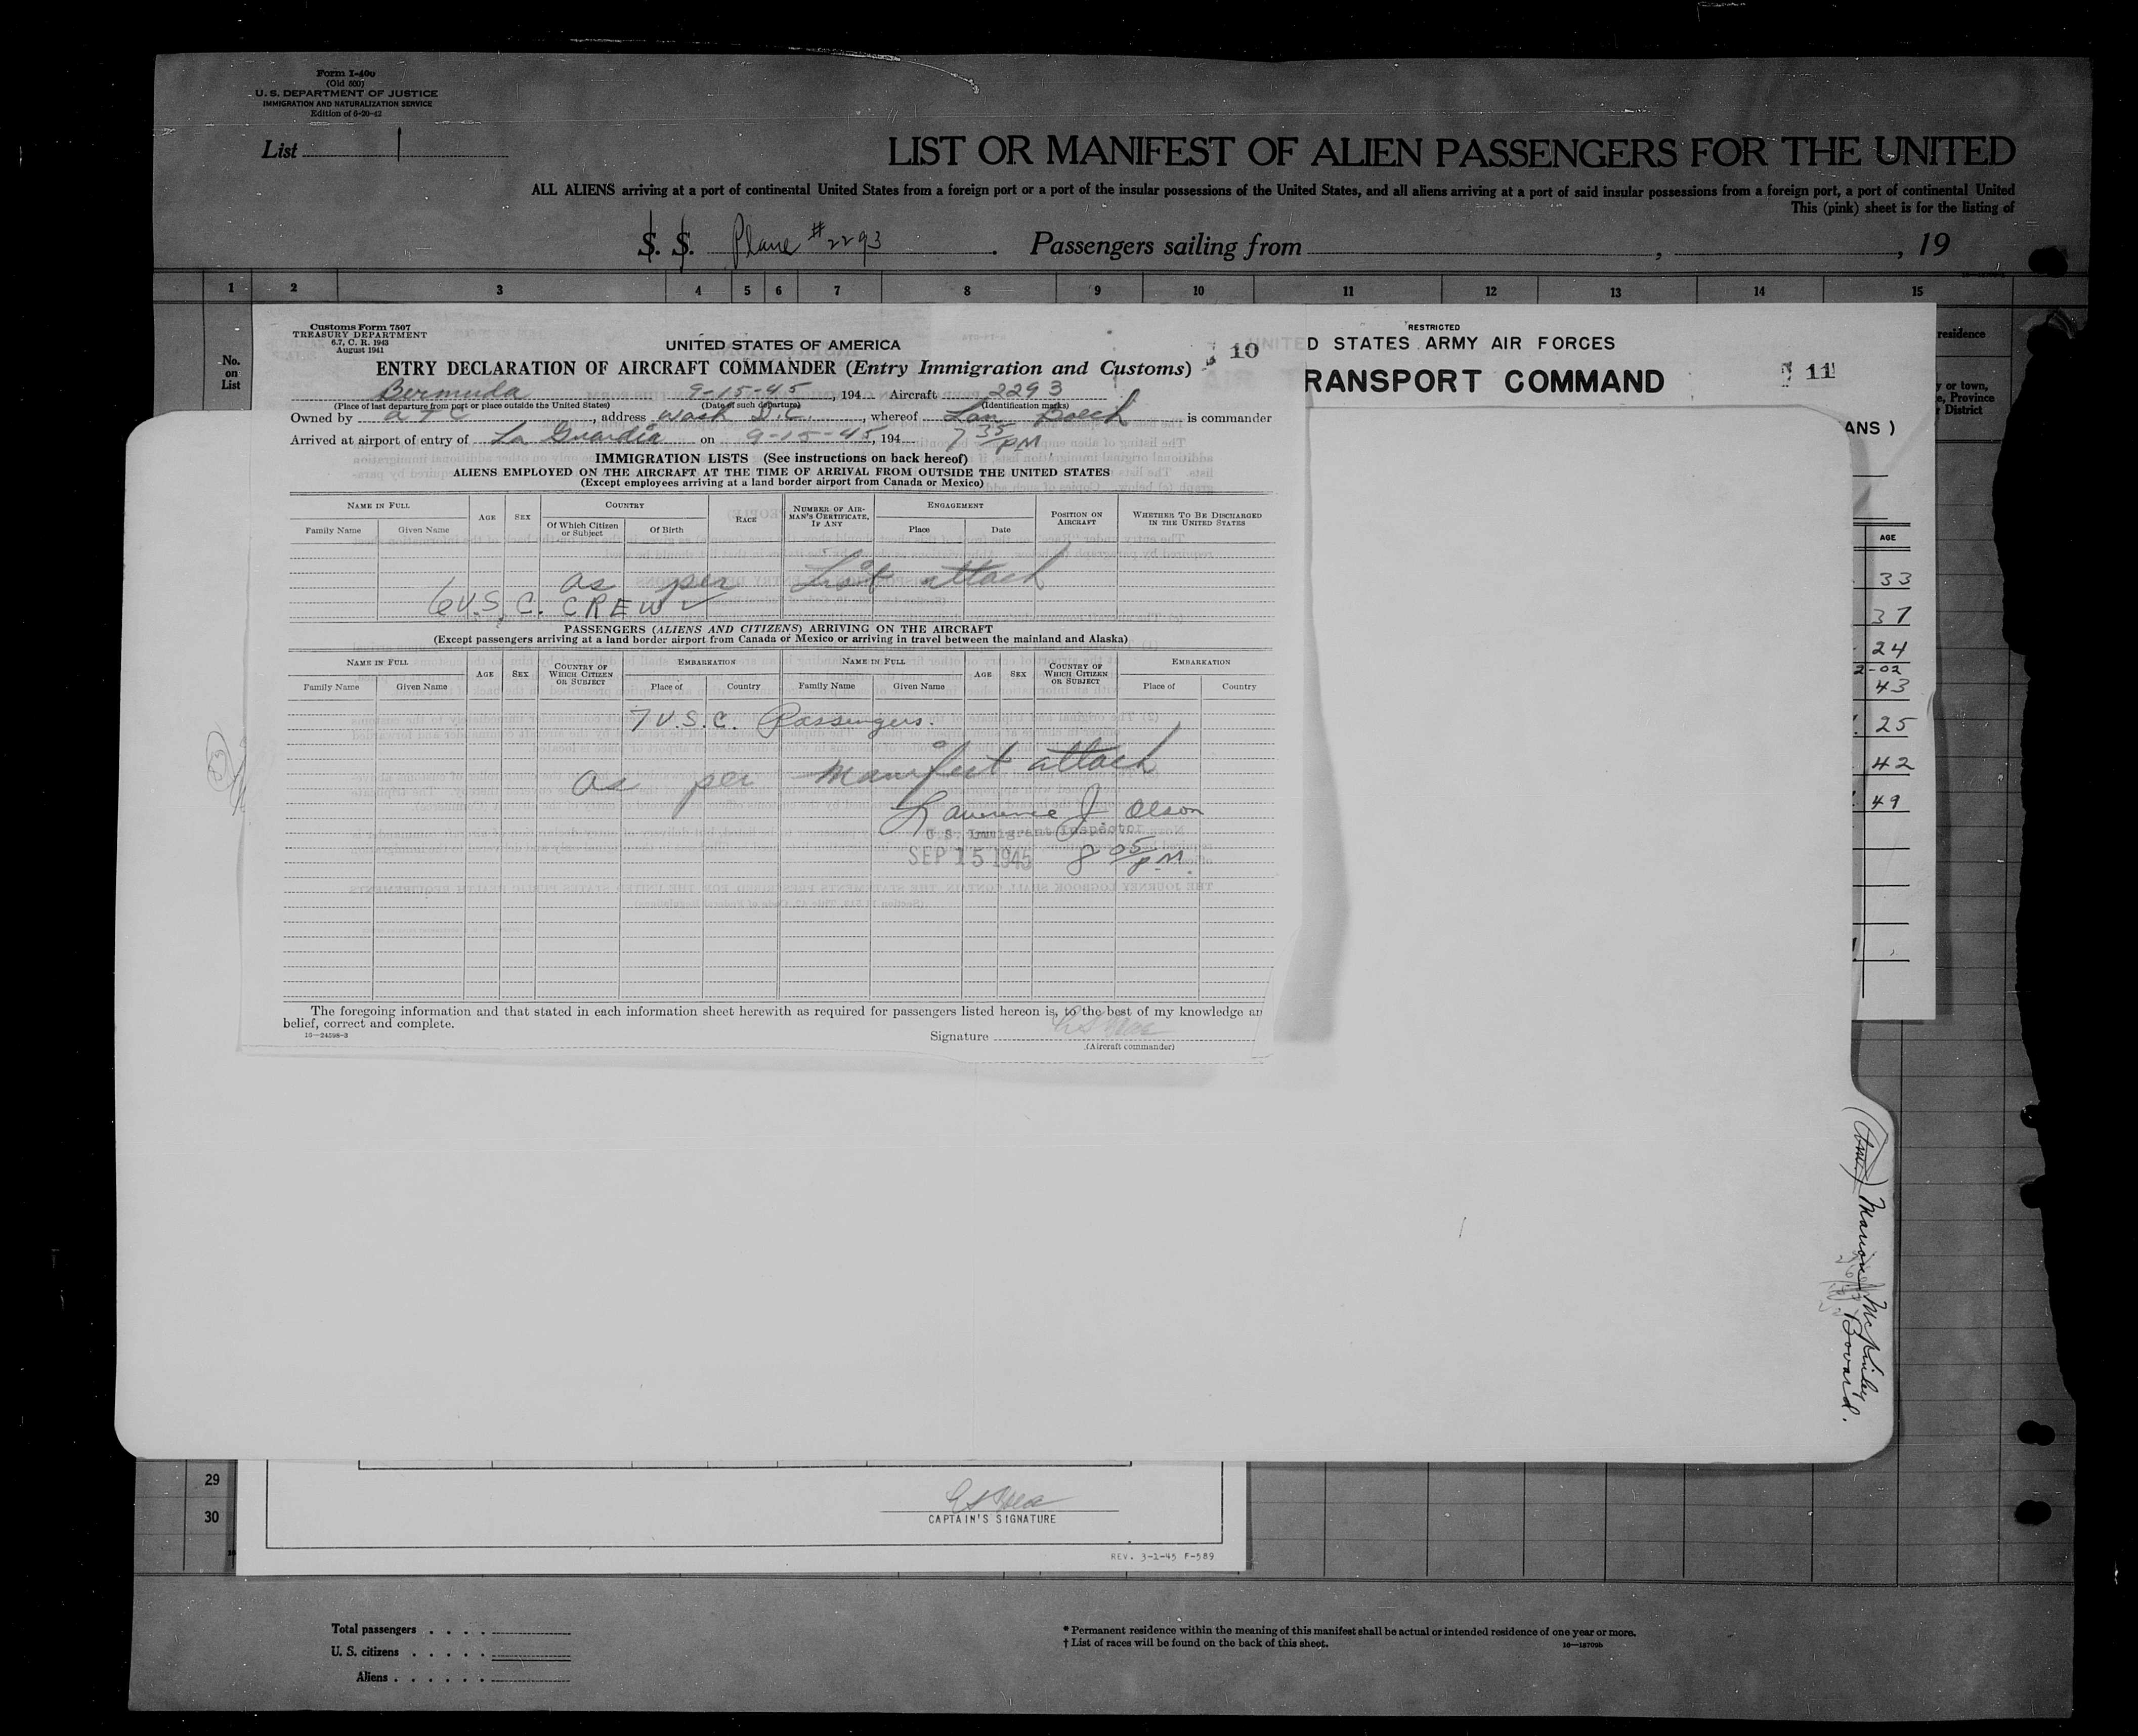 Form I-400
(Old 500)
U. S. DEPARTMENT OF JUSTICE
IMMIGRATION AND NATURALIZATION SERVICE
Edition of 6-20-42
List 1
LIST OR MANIFEST OF ALIEN PASSENGERS FOR THE UNITED
ALL ALIENS arriving at a port of continental United States from a foreign port or a port of the insular possessions of the United States, and all aliens arriving at a port of said insular possessions from a foreign port, a port of continental United
This (pink) sheet is for the listing of
S. S. Plane #2293. Passengers sailing from , , 19
1 2 3 4 5 6 7 8 9 10 11 12 13 14 15
No.
on
List
residence
y or town,
e, Province
r District
Customs Form 7507
TREASURY DEPARTMENT
6.7, C. R. 1943
August 1941
UNITED STATES OF AMERICA
10
ENTRY DECLARATION OF AIRCRAFT COMMANDER (Entry Immigration and Customs)
Bermuda 9-15-45, 194 Aircraft 2293
(Place of last departure from port or place outside the United States) (Date of such departure) (Identification marks)
Owned by A T C, address Wash D.C., whereof is commander
Arrived at airport of entry of La Guardia on 9-15-45, 194 7 35 PM
IMMIGRATION LISTS (See instructions on back hereof)
ALIENS EMPLOYED ON THE AIRCRAFT AT THE TIME OF ARRIVAL FROM OUTSIDE THE UNITED STATES
(Except employees arriving at a land border airport from Canada or Mexico)
NAME IN FULL AGE SEX COUNTRY RACE NUMBER OF AIRMAN'S CERTIFICATE, IF ANY ENGAGEMENT POSITION ON AIRCRAFT WHETHER TO BE DISCHARGED IN THE UNITED STATES
Family Name Given Name Of Which Citizen or Subject Of Birth Place Date
as per List attach
6 U.S.C. CREW ✓
PASSENGERS (ALIENS AND CITIZENS) ARRIVING ON THE AIRCRAFT
(Except passengers arriving at a land border airport from Canada or Mexico or arriving in travel between the mainland and Alaska)
NAME IN FULL AGE SEX COUNTRY OF WHICH CITIZEN OR SUBJECT EMBARKATION NAME IN FULL AGE SEX COUNTRY OF WHICH CITIZEN OR SUBJECT EMBARKATION
Family Name Given Name Place of Country Family Name Given Name Place of Country
7 U.S.C. Passengers.
as per manifest attach
Lawrence J Olson
U.S. Immigrant Inspector
SEP 15 1945 8 05 P.M.
The foregoing information and that stated in each information sheet herewith as required for passengers listed hereon is, to the best of my knowledge an
belief, correct and complete.
10—24598-3
Signature
(Aircraft commander)
RESTRICTED
UNITED STATES ARMY AIR FORCES
RANSPORT COMMAND
11
ANS )
AGE
33
37
24
2-02
43
25
42
49
Marion McKinley
Bovard.
29
30
CAPTAIN'S SIGNATURE
REV. 3-1-45 F-589
Total passengers
U. S. citizens
Aliens
* Permanent residence within the meaning of this manifest shall be actual or intended residence of one year or more.
† List of races will be found on the back of this sheet.
16—18709b